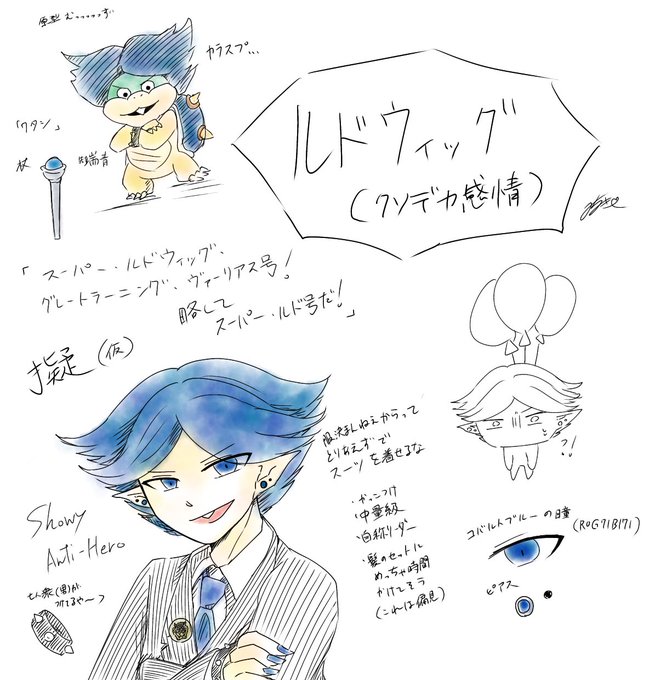 原型 むっっっっず
カラスプ…
「ワタシ」
杖
ルドウィッグ
(クソデカ感情)
「スーパー・ルドウィッグ、
グレートラーニング、ヴァーリアス号!
略して
スーパー・ルド号だ!」
擬(仮)
?!
服決まんねえからって
とりあえずで
スーツを着せるな
・かっこつけ
・中量級
・自称リーダー
・髪のセットに
めっちゃ時間
かけてそう
(これは偏見)
コバルトブルーの瞳
(R0G71B171)
ピアス
Showy
Anti-Hero
七人衆(男)が
つけてるや〜つ